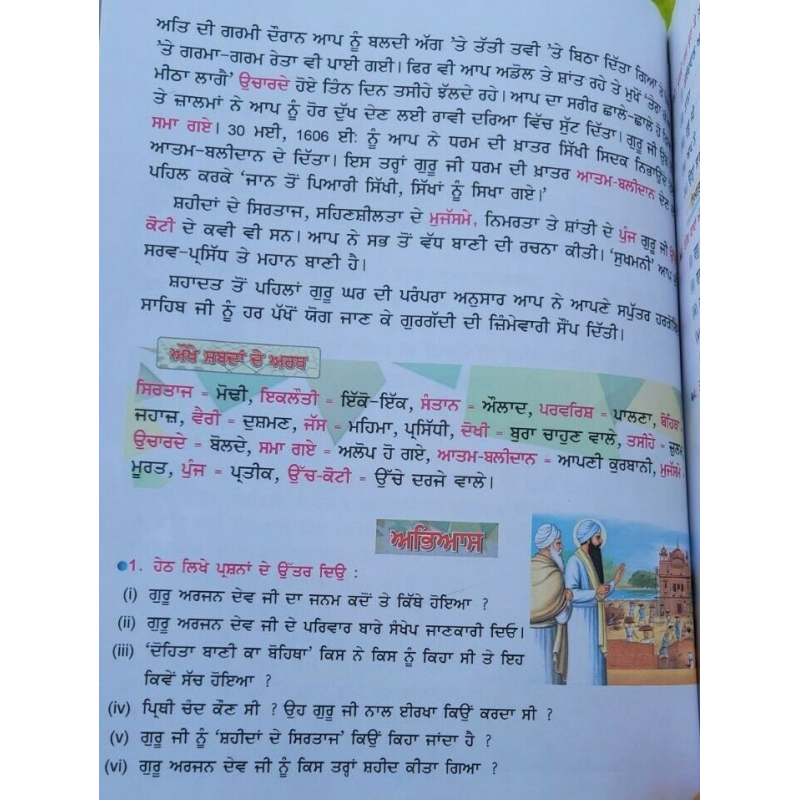 ਅਤਿ ਦੀ ਗਰਮੀ ਦੌਰਾਨ ਆਪ ਨੂੰ ਬਲਦੀ ਅੱਗ 'ਤੇ ਤੱਤੀ ਤਵੀ 'ਤੇ ਬਿਠਾ ਦਿੱਤਾ ਗਿਆ ਤੇ
'ਤੇ ਗਰਮਾ-ਗਰਮ ਰੇਤਾ ਵੀ ਪਾਈ ਗਈ। ਫਿਰ ਵੀ ਆਪ ਅਡੋਲ ਤੇ ਸ਼ਾਂਤ ਰਹੇ ਤੇ ਮੁਖੋਂ 'ਤੇਰਾ
ਮੀਠਾ ਲਾਗੈ' ਉਚਾਰਦੇ ਹੋਏ ਤਿੰਨ ਦਿਨ ਤਸੀਹੇ ਝੱਲਦੇ ਰਹੇ। ਆਪ ਦਾ ਸਰੀਰ ਛਾਲੇ-ਛਾਲੇ ਹੋ
ਤੇ ਜ਼ਾਲਮਾਂ ਨੇ ਆਪ ਨੂੰ ਹੋਰ ਦੁੱਖ ਦੇਣ ਲਈ ਰਾਵੀ ਦਰਿਆ ਵਿੱਚ ਸੁੱਟ ਦਿੱਤਾ। ਗੁਰੂ ਜੀ
ਸਮਾ ਗਏ। 30 ਮਈ, 1606 ਈ: ਨੂੰ ਆਪ ਨੇ ਧਰਮ ਦੀ ਖ਼ਾਤਰ ਸਿੱਖੀ ਸਿਦਕ ਨਿਭਾਉਂਦੇ
ਆਤਮ-ਬਲੀਦਾਨ ਦੇ ਦਿੱਤਾ। ਇਸ ਤਰ੍ਹਾਂ ਗੁਰੂ ਜੀ ਧਰਮ ਦੀ ਖ਼ਾਤਰ ਆਤਮ-ਬਲੀਦਾਨ ਦੇਣ
ਪਹਿਲ ਕਰਕੇ 'ਜਾਨ ਤੋਂ ਪਿਆਰੀ ਸਿੱਖੀ, ਸਿੱਖਾਂ ਨੂੰ ਸਿਖਾ ਗਏ।'
ਸ਼ਹੀਦਾਂ ਦੇ ਸਿਰਤਾਜ, ਸਹਿਣਸ਼ੀਲਤਾ ਦੇ ਮੁਜੱਸਮੇ, ਨਿਮਰਤਾ ਤੇ ਸ਼ਾਂਤੀ ਦੇ ਪੁੰਜ ਗੁਰੂ ਜੀ
ਕੋਟੀ ਦੇ ਕਵੀ ਵੀ ਸਨ। ਆਪ ਨੇ ਸਭ ਤੋਂ ਵੱਧ ਬਾਣੀ ਦੀ ਰਚਨਾ ਕੀਤੀ। 'ਸੁਖਮਨੀ' ਆਪ
ਸਰਵ-ਪ੍ਰਸਿੱਧ ਤੇ ਮਹਾਨ ਬਾਣੀ ਹੈ।
ਸ਼ਹਾਦਤ ਤੋਂ ਪਹਿਲਾਂ ਗੁਰੂ ਘਰ ਦੀ ਪਰੰਪਰਾ ਅਨੁਸਾਰ ਆਪ ਨੇ ਆਪਣੇ ਸਪੁੱਤਰ
ਸਾਹਿਬ ਜੀ ਨੂੰ ਹਰ ਪੱਖੋਂ ਯੋਗ ਜਾਣ ਕੇ ਗੁਰਗੱਦੀ ਦੀ ਜ਼ਿੰਮੇਵਾਰੀ ਸੌਂਪ ਦਿੱਤੀ।
ਔਖੇ ਸ਼ਬਦਾਂ ਦੇ ਅਰਥ
ਸਿਰਤਾਜ = ਮੋਢੀ, ਇਕਲੌਤੀ = ਇੱਕੋ-ਇੱਕ, ਸੰਤਾਨ = ਔਲਾਦ, ਪਰਵਰਿਸ਼ = ਪਾਲਣਾ, ਬੋਹਿਥਾ
ਜਹਾਜ਼, ਵੈਰੀ = ਦੁਸ਼ਮਣ, ਜੱਸ = ਮਹਿਮਾ, ਪ੍ਰਸਿੱਧੀ, ਦੋਖੀ = ਬੁਰਾ ਚਾਹੁਣ ਵਾਲੇ, ਤਸੀਹੇ = ਜ਼ੁਲਮ
ਉਚਾਰਦੇ = ਬੋਲਦੇ, ਸਮਾ ਗਏ = ਅਲੋਪ ਹੋ ਗਏ, ਆਤਮ-ਬਲੀਦਾਨ = ਆਪਣੀ ਕੁਰਬਾਨੀ, ਮੁਜੱਸਮੇ =
ਮੂਰਤ, ਪੁੰਜ = ਪ੍ਰਤੀਕ, ਉੱਚ-ਕੋਟੀ = ਉੱਚੇ ਦਰਜੇ ਵਾਲੇ।
ਅਭਿਆਸ
1. ਹੇਠ ਲਿਖੇ ਪ੍ਰਸ਼ਨਾਂ ਦੇ ਉੱਤਰ ਦਿਉ :
(i) ਗੁਰੂ ਅਰਜਨ ਦੇਵ ਜੀ ਦਾ ਜਨਮ ਕਦੋਂ ਤੇ ਕਿੱਥੇ ਹੋਇਆ ?
(ii) ਗੁਰੂ ਅਰਜਨ ਦੇਵ ਜੀ ਦੇ ਪਰਿਵਾਰ ਬਾਰੇ ਸੰਖੇਪ ਜਾਣਕਾਰੀ ਦਿਓ।
(iii) 'ਦੋਹਿਤਾ ਬਾਣੀ ਕਾ ਬੋਹਿਥਾ' ਕਿਸ ਨੇ ਕਿਸ ਨੂੰ ਕਿਹਾ ਸੀ ਤੇ ਇਹ
ਕਿਵੇਂ ਸੱਚ ਹੋਇਆ ?
(iv) ਪ੍ਰਿਥੀ ਚੰਦ ਕੌਣ ਸੀ ? ਉਹ ਗੁਰੂ ਜੀ ਨਾਲ ਈਰਖਾ ਕਿਉਂ ਕਰਦਾ ਸੀ ?
(v) ਗੁਰੂ ਜੀ ਨੂੰ 'ਸ਼ਹੀਦਾਂ ਦੇ ਸਿਰਤਾਜ' ਕਿਉਂ ਕਿਹਾ ਜਾਂਦਾ ਹੈ ?
(vi) ਗੁਰੂ ਅਰਜਨ ਦੇਵ ਜੀ ਨੂੰ ਕਿਸ ਤਰ੍ਹਾਂ ਸ਼ਹੀਦ ਕੀਤਾ ਗਿਆ ?